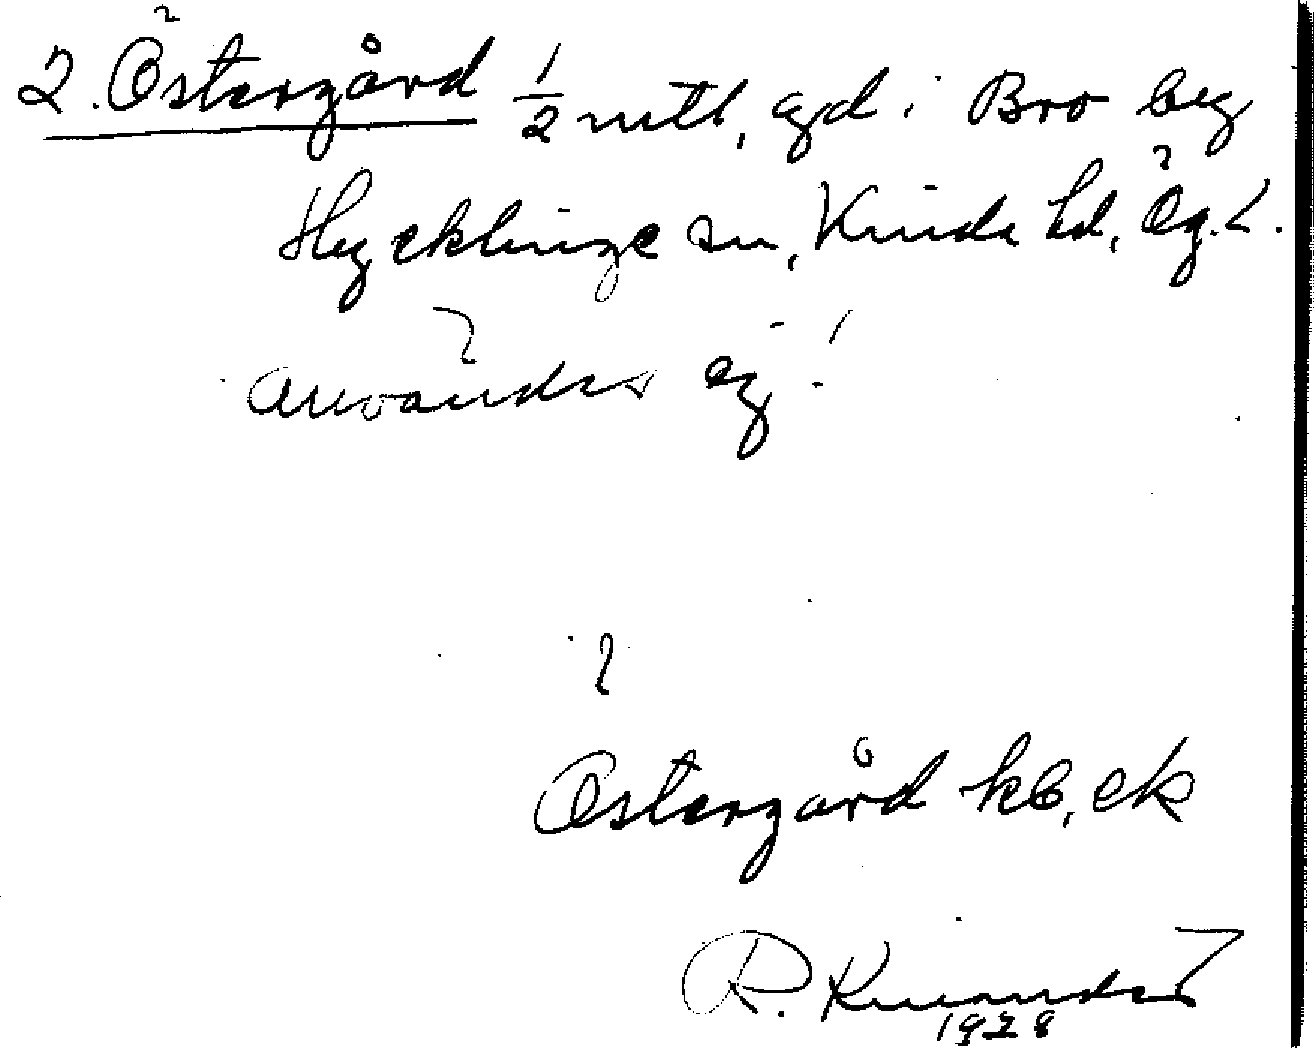 2. Östergård 1/2 mtl, gd i Bro by
Hycklinge sn, Kinda hd, Ög. L.
Användes ej!
Östergård kb, ek
R.
1928